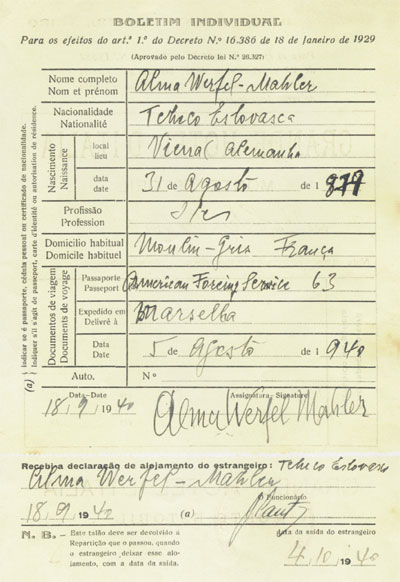 BOLETIM INDIVIDUAL
Para os efeitos do art.º 1.º do Decreto N.º 16.386 de 18 de Janeiro de 1929
(Aprovado pelo Decreto lei N.º 26.327)
Nome completo
Nom et prénom
Alma Werfel-Mahler
Nacionalidade
Nationalité
Tcheco Eslovasca
Nascimento
Naissance
local
lieu
Viena Alemanha
data
date
31 de Agosto de 1 879
Profissão
Profession
Domicilio habitual
Domicile habituel
Moulin-Gris França
Documentos de viagem
Documents de voyage
Passaporte
Passeport
American Foreing Service 63
Expedido em
Delivré à
Marselha
Data
Date
5 de Agosto de 1 940
Auto.
N.º
(a) Indicar se é passaporte, cédula pessoal ou certificado de nacionalidade.
Indiquer s'il s'agit de passeport, carte d'identité ou autorisation de résidence.
Data-Date
18/9/19 40
Assignatura-Signature
Alma Werfel Mahler
Recebi a declaração de alojamento do estrangeiro: Tcheco Eslovasco
Alma Werfel-Mahler
18/9/19 40
(a)
O Funcionário
N. B. - Este talão deve ser devolvido a
Repartição que o passou, quando
o estrangeiro deixar esse alo-
jamento, com a data da saída.
data da saida do estrangeiro
4/10/19 40